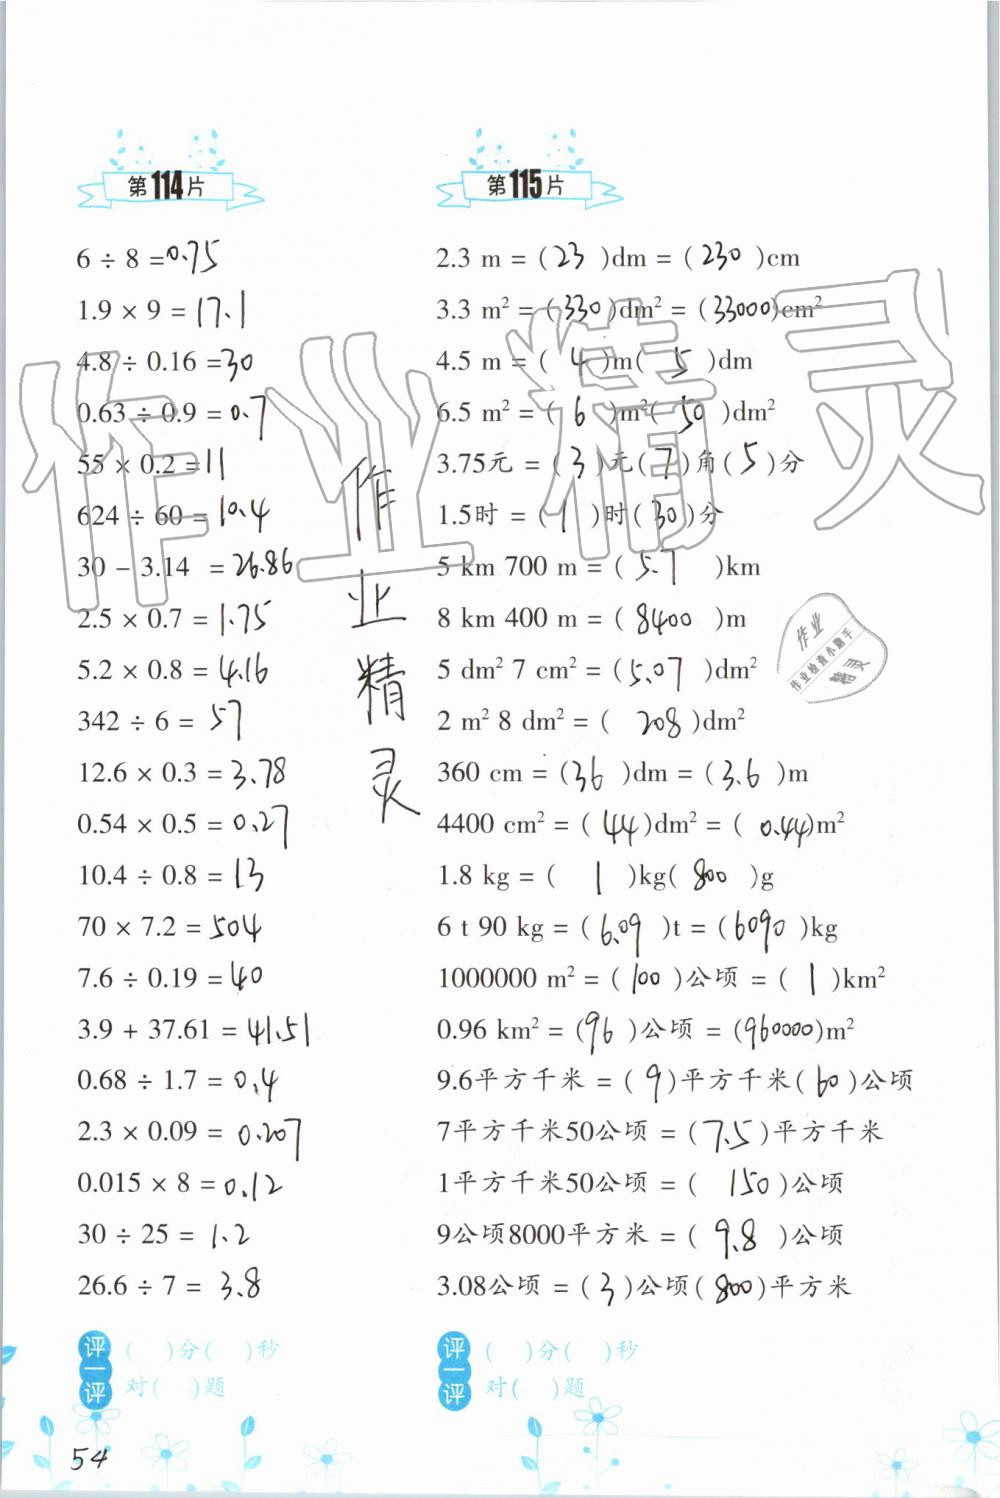 第114片
6 ÷ 8 = 0.75
1.9 × 9 = 17.1
4.8 ÷ 0.16 = 30
0.63 ÷ 0.9 = 0.7
55 × 0.2 = 11
624 ÷ 60 = 10.4
30 - 3.14 = 26.86
2.5 × 0.7 = 1.75
5.2 × 0.8 = 4.16
342 ÷ 6 = 57
12.6 × 0.3 = 3.78
0.54 × 0.5 = 0.27
10.4 ÷ 0.8 = 13
70 × 7.2 = 504
7.6 ÷ 0.19 = 40
3.9 + 37.61 = 41.51
0.68 ÷ 1.7 = 0.4
2.3 × 0.09 = 0.207
0.015 × 8 = 0.12
30 ÷ 25 = 1.2
26.6 ÷ 7 = 3.8
评一评
( )分( )秒
对( )题
54
作业精灵
第115片
2.3 m = ( 23 )dm = ( 230 )cm
3.3 m² = ( 330 )dm² = ( 33000 )cm²
4.5 m = ( 4 )m( 5 )dm
6.5 m² = ( 6 )m²( 50 )dm²
3.75元 = ( 3 )元( 7 )角( 5 )分
1.5时 = ( 1 )时( 30 )分
5 km 700 m = ( 5.7 )km
8 km 400 m = ( 8400 )m
5 dm² 7 cm² = ( 5.07 )dm²
2 m² 8 dm² = ( 208 )dm²
360 cm = ( 36 )dm = ( 3.6 )m
4400 cm² = ( 44 )dm² = ( 0.44 )m²
1.8 kg = ( 1 )kg( 800 )g
6 t 90 kg = ( 6.09 )t = ( 6090 )kg
1000000 m² = ( 100 )公顷 = ( 1 )km²
0.96 km² = ( 96 )公顷 = ( 960000 )m²
9.6平方千米 = ( 9 )平方千米( 60 )公顷
7平方千米50公顷 = ( 7.5 )平方千米
1平方千米50公顷 = ( 150 )公顷
9公顷8000平方米 = ( 9.8 )公顷
3.08公顷 = ( 3 )公顷( 800 )平方米
评一评
( )分( )秒
对( )题
作业精灵
作业
作业检查小助手
精灵